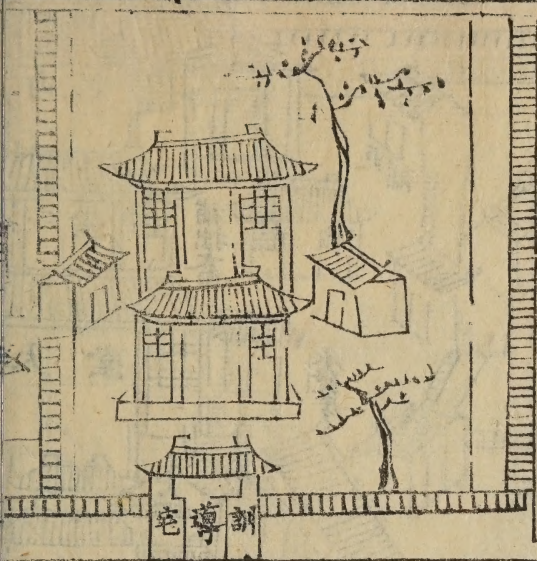 訓導宅